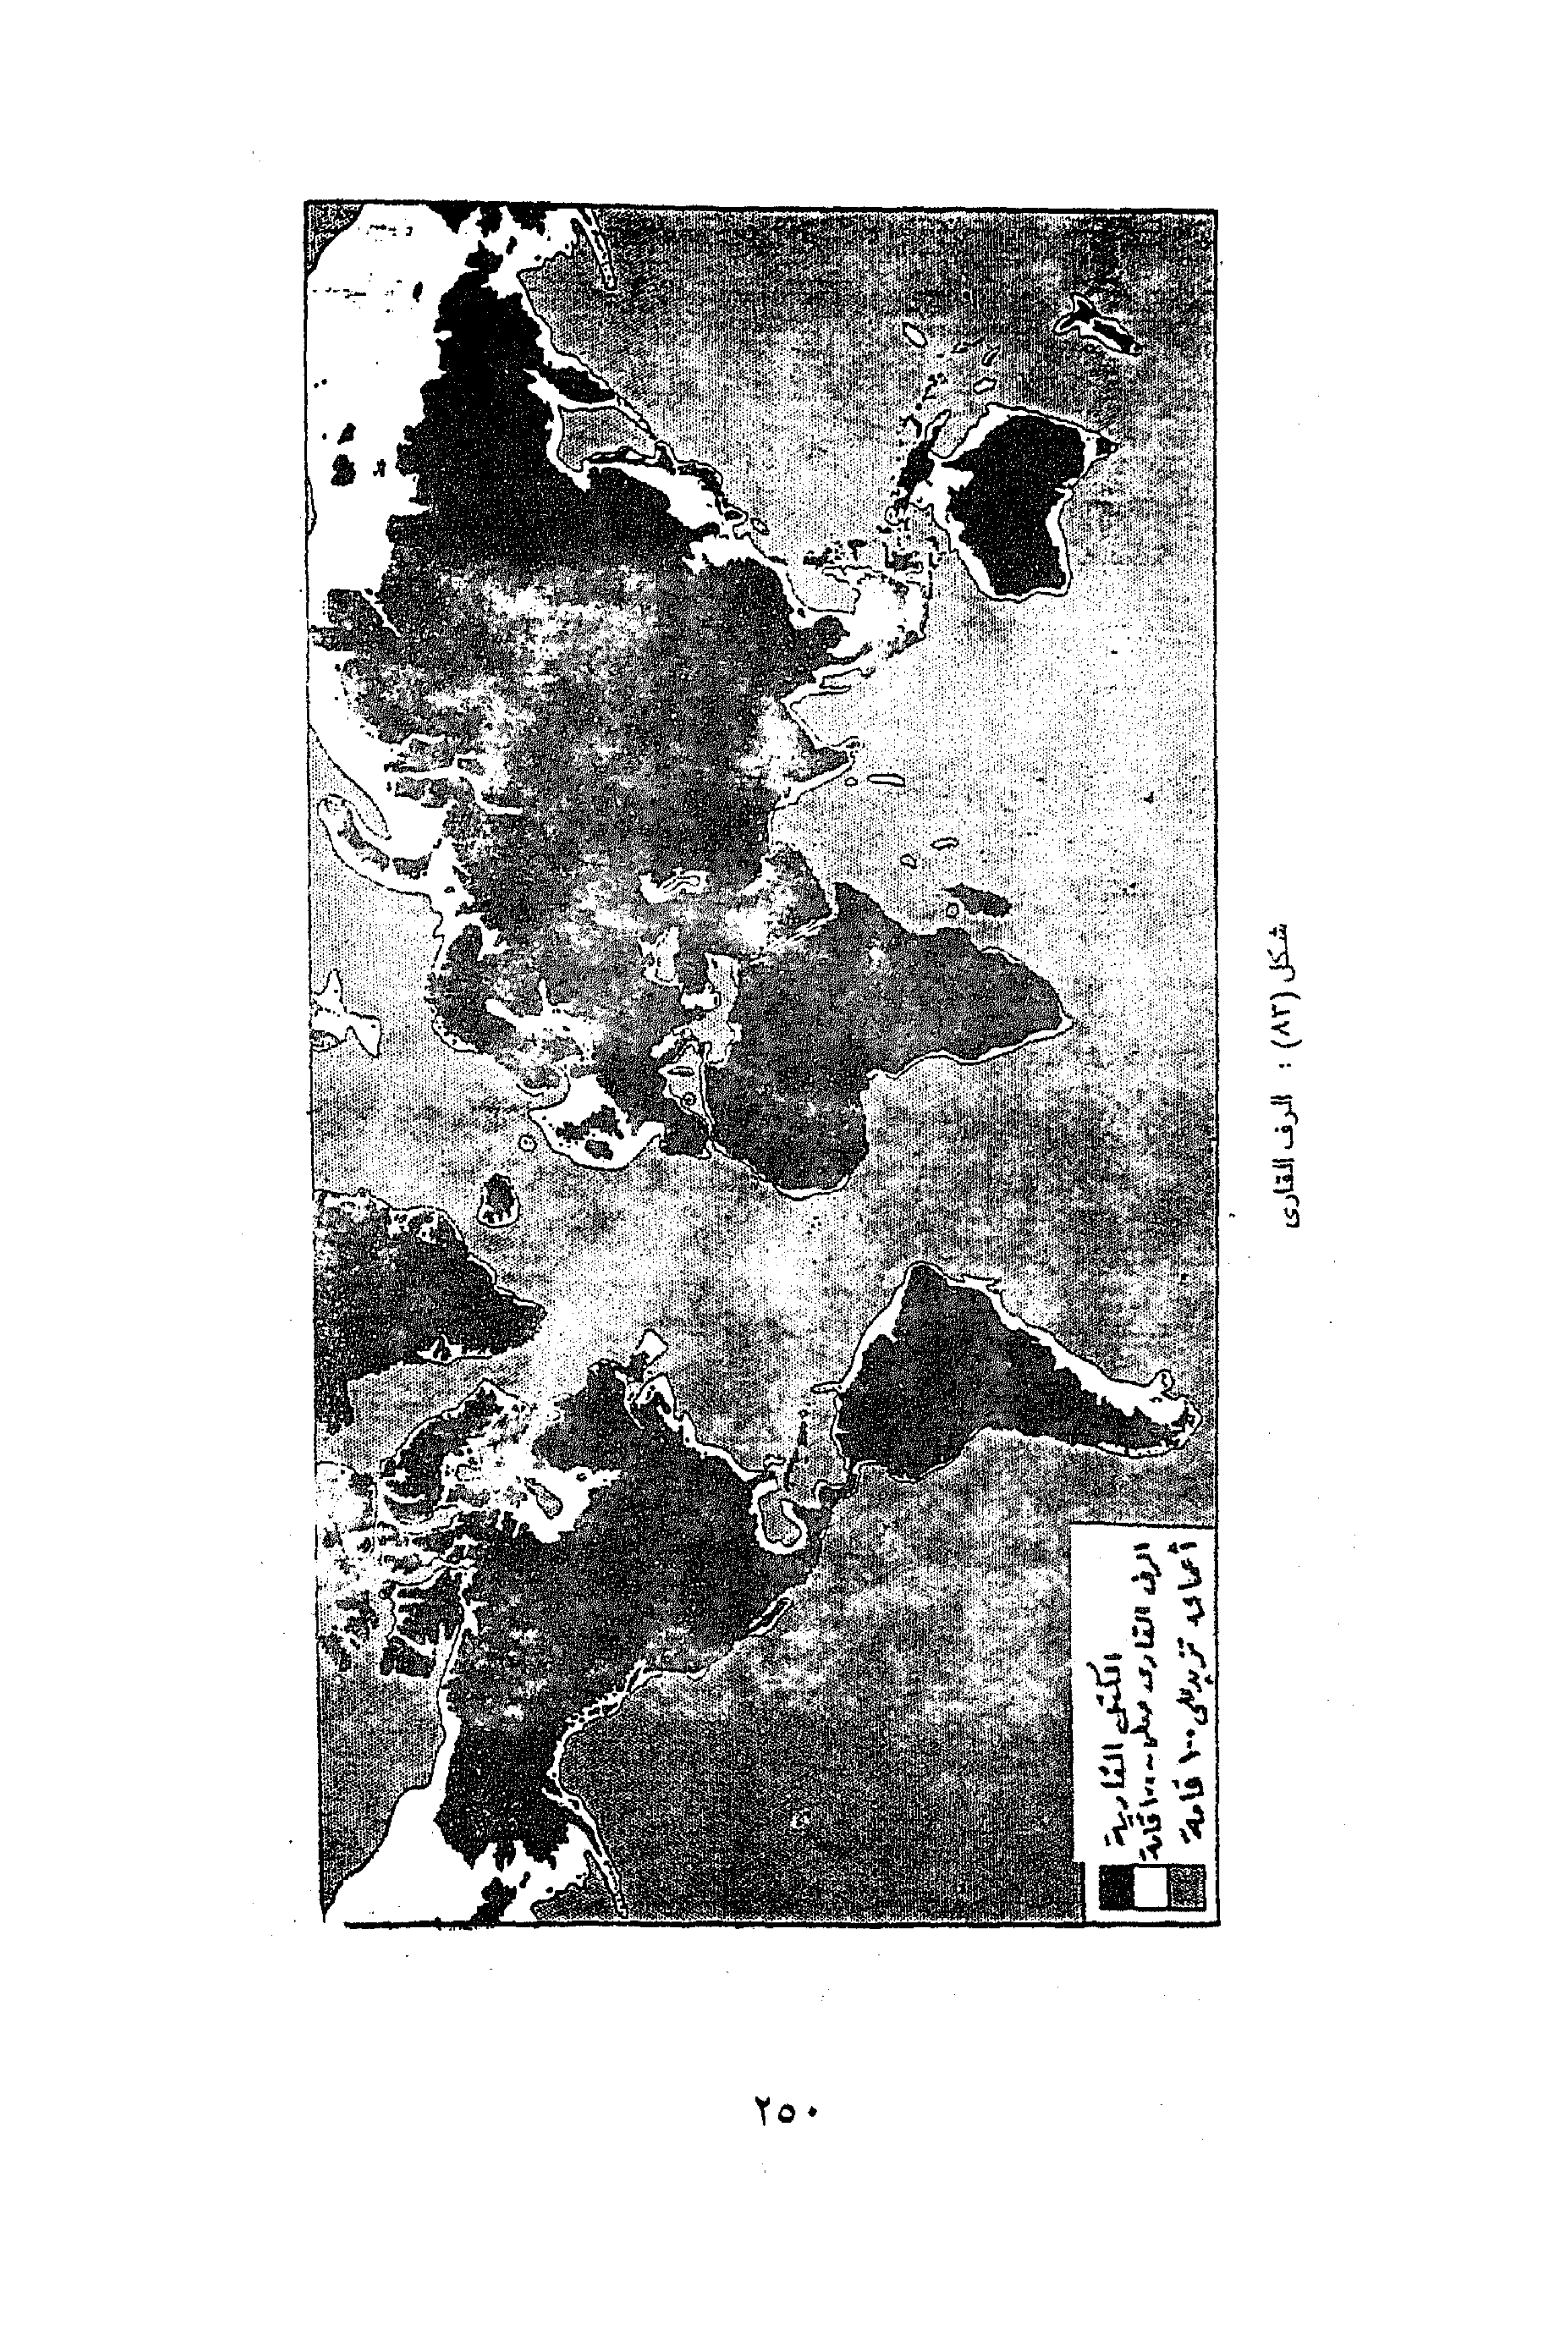 الكتل القارية
الرف القارى حتى ١٠٠ قامة
أعماق تزيد على ١٠٠ قامة
شكل (٨٣) : الرف القارى
٢٥٠